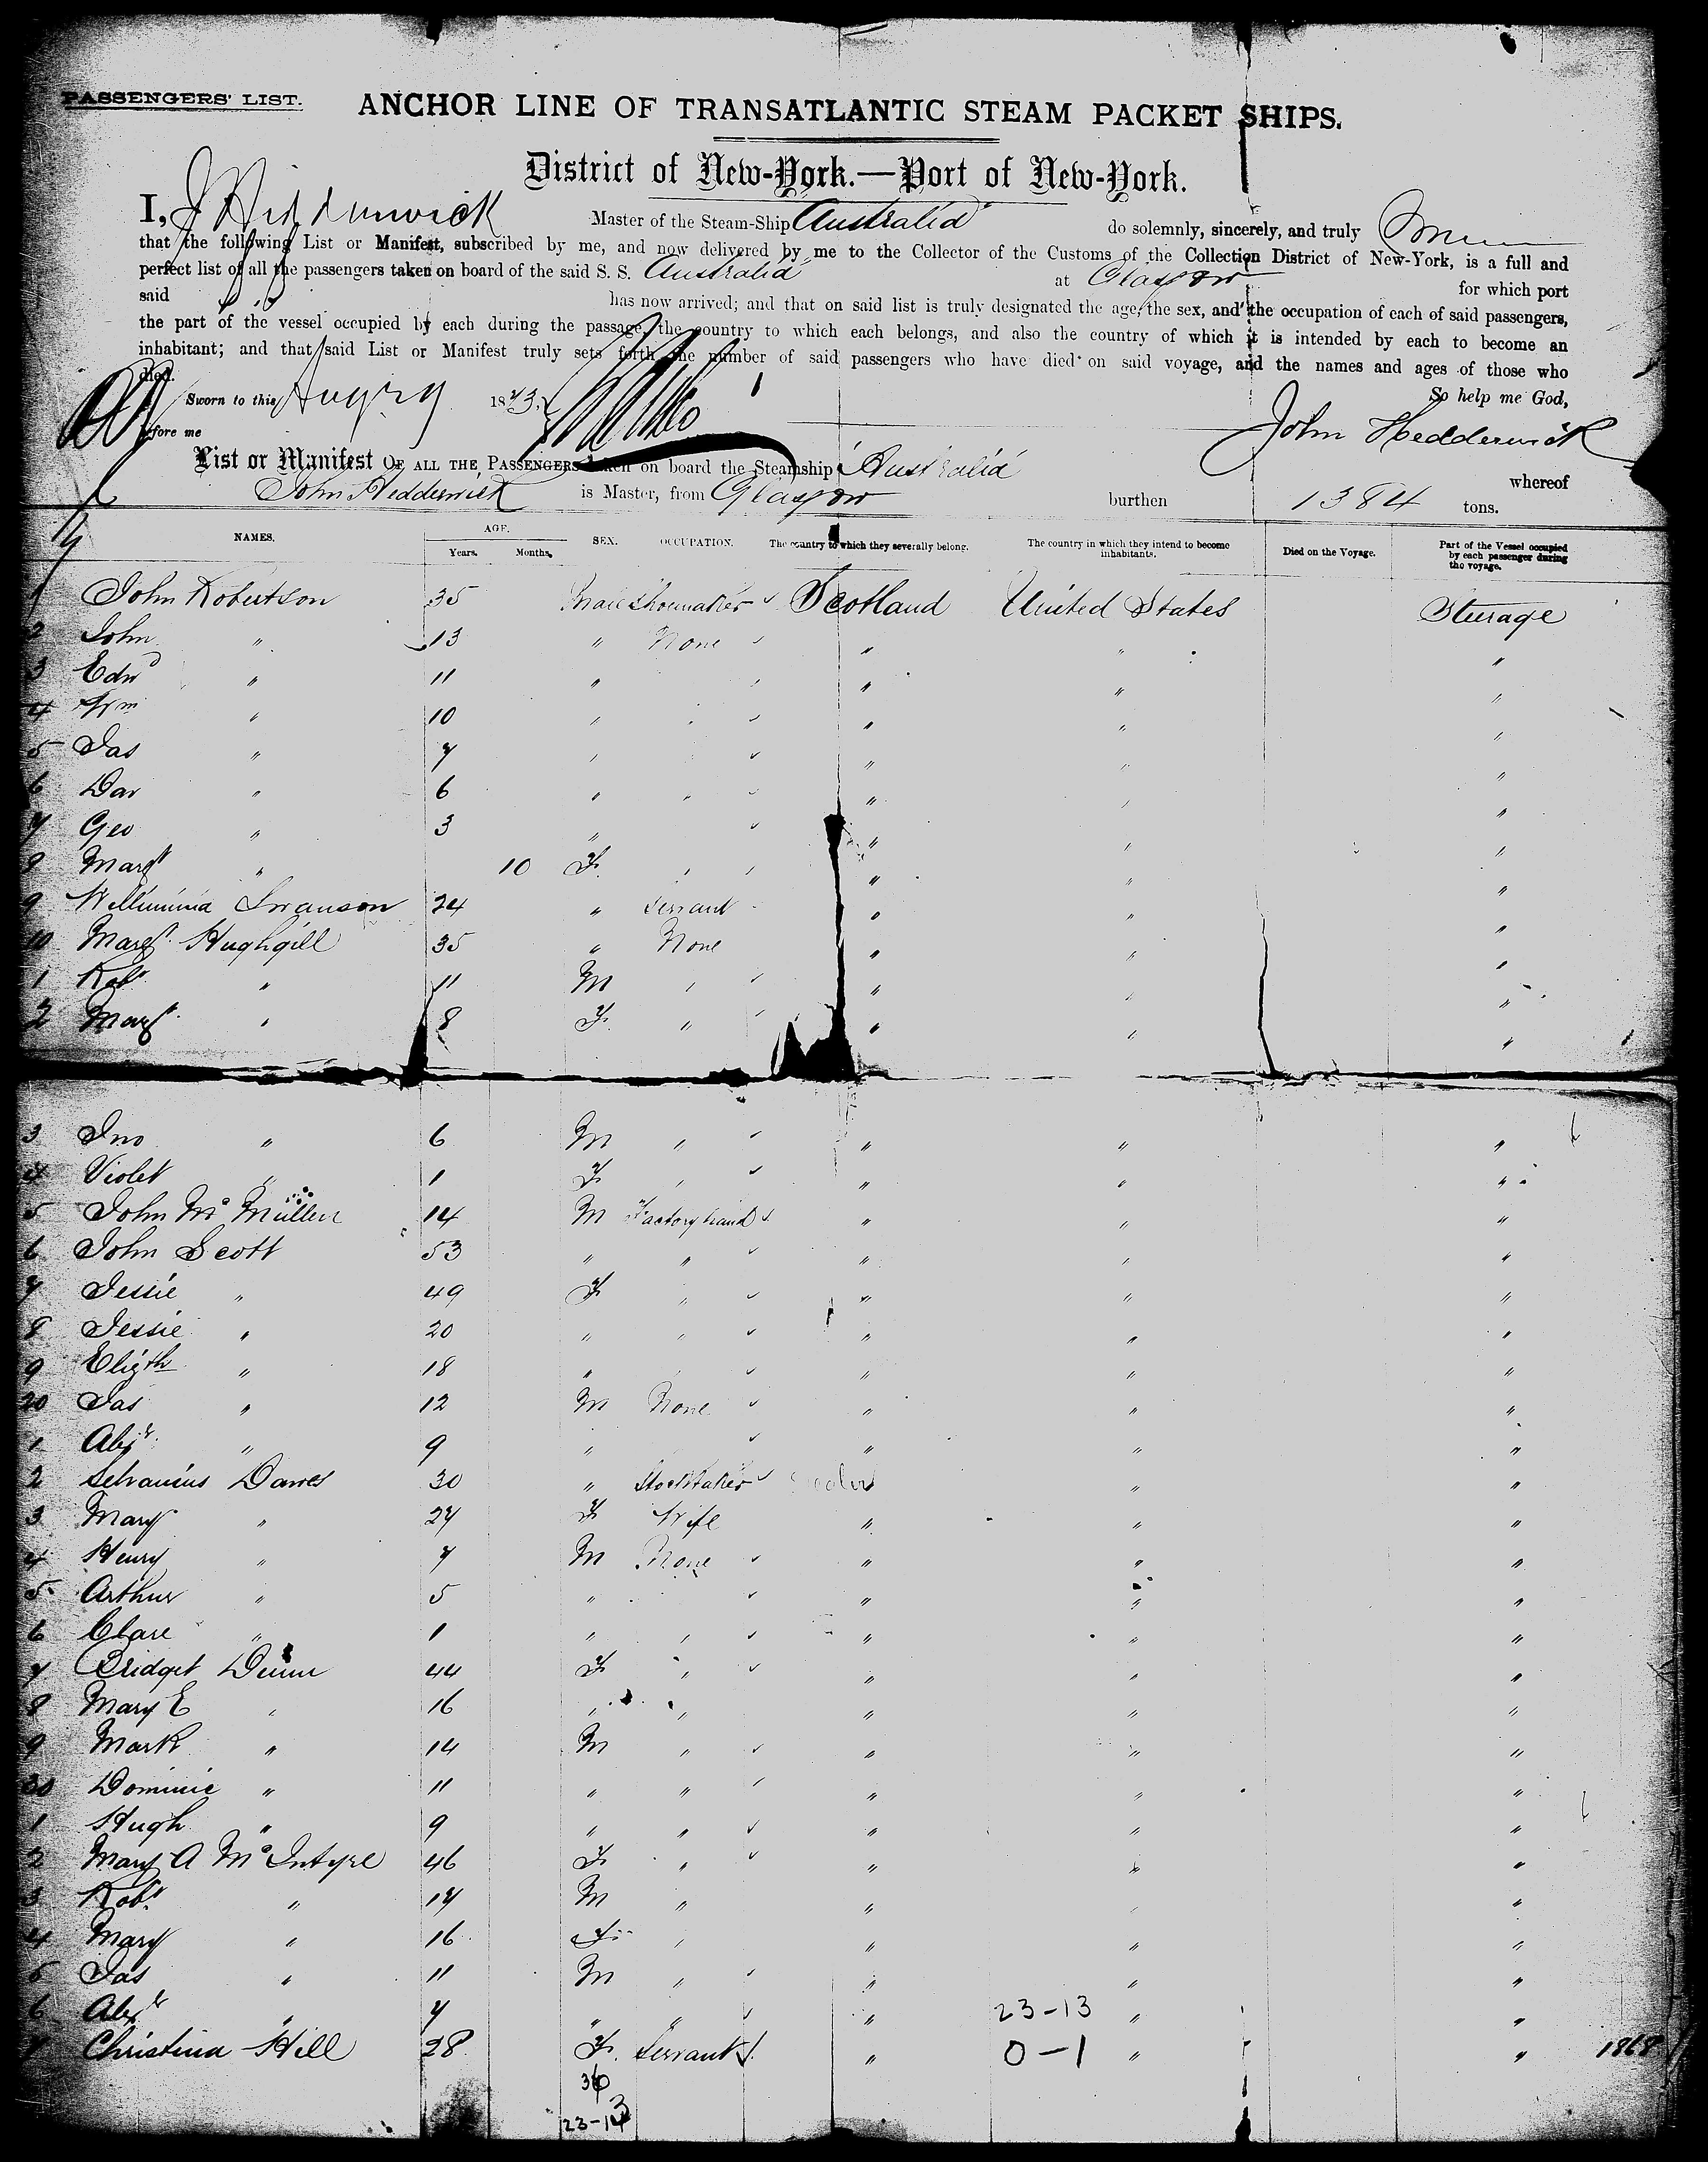 PASSENGERS' LIST.
ANCHOR LINE OF TRANSATLANTIC STEAM PACKET SHIPS.
District of New-York.—Port of New-York.
I, J Hedderwick Master of the Steam-Ship Australia do solemnly, sincerely, and truly
that the following List or Manifest, subscribed by me, and now delivered by me to the Collector of the Customs of the Collection District of New-York, is a full and
perfect list of all the passengers taken on board of the said S. S. Australia at Glasgow for which port
said has now arrived; and that on said list is truly designated the age, the sex, and the occupation of each of said passengers,
the part of the vessel occupied by each during the passage, the country to which each belongs, and also the country of which it is intended by each to become an
inhabitant; and that said List or Manifest truly sets forth the number of said passengers who have died on said voyage, and the names and ages of those who
died.
So help me God,
Sworn to this Aug 29 1873,
before me
John Hedderwick
List or Manifest OF ALL THE PASSENGERS taken on board the Steamship Australia whereof
John Hedderwick is Master, from Glasgow burthen 1384 tons.
NAMES. AGE. Years. Months. SEX. OCCUPATION. The country to which they severally belong. The country in which they intend to become inhabitants. Died on the Voyage. Part of the Vessel occupied by each passenger during the voyage.
1 John Robertson 35 Male Shoemaker Scotland United States Steerage
2 John " 13 " None " " "
3 Edwd " 11 " " " " "
4 Wm " 10 " " " " "
5 Jas " 7 " " " "
6 Dav " 6 " " " " "
7 Geo " 3 " " " "
8 Margt " 10 F " " " "
9 Willimina Swanson 24 " Servant " " "
10 Margt Hughgill 35 " None " " "
1 Robt " 11 M " " " "
2 Margt " 8 F " " " "
3 Jno " 6 M " " " "
4 Violet " 1 F " " " "
5 John McMullen 14 M Factory hand " " "
6 John Scott 53 " " " " "
7 Jessie " 49 F " " " "
8 Jessie " 20 " " " " "
9 Elizth " 18 " " " "
20 Jas " 12 M None " " "
1 Alexr " 9 " " " "
2 Selvanius Dawes 30 " Stocktaker " "
3 Mary " 27 F Wife " " "
4 Henry " 7 M None " " "
5 Arthur " 5 " " " "
6 Clare " 1 " " " " "
7 Bridget Dunn 44 F " " " "
8 Mary E " 16 " " " " "
9 Mark " 14 M " " " "
30 Dominic " 11 " " " " "
1 Hugh " 9 " " " " "
2 Mary A McIntyre 46 F " " " "
3 Robt " 17 M " " " "
4 Mary " 16 F " " " "
5 Jas " 11 M " " " "
6 Alexr " 7 " " " 23-13 " "
7 Christina Hill 28 F. Servant " 0-1 " " 1868
36
23-13